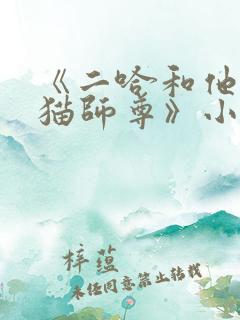 《二哈和他
猫師尊》小
梓蕴
未经同意禁止转载